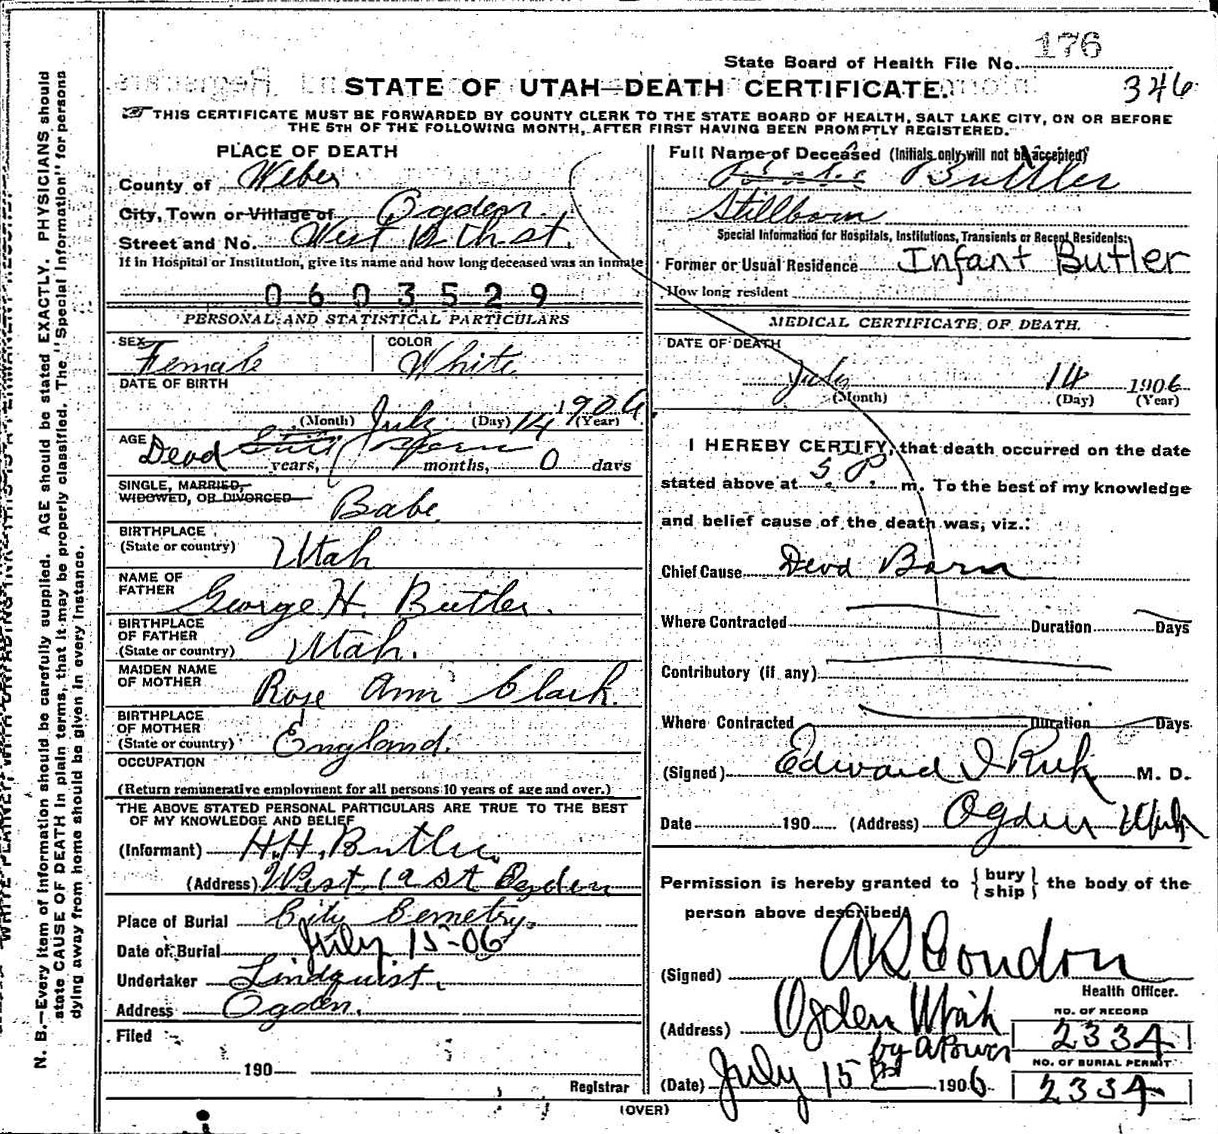 State Board of Health File No. 176
346
STATE OF UTAH—DEATH CERTIFICATE.
THIS CERTIFICATE MUST BE FORWARDED BY COUNTY CLERK TO THE STATE BOARD OF HEALTH, SALT LAKE CITY, ON OR BEFORE
THE 5TH OF THE FOLLOWING MONTH, AFTER FIRST HAVING BEEN PROMPTLY REGISTERED.
PLACE OF DEATH
County of Weber
City, Town or Village of Ogden.
Street and No. West 12th st.
If in Hospital or Institution, give its name and how long deceased was an inmate
0603529
PERSONAL AND STATISTICAL PARTICULARS
SEX Female
COLOR White
DATE OF BIRTH
(Month) July (Day) 14 1906 (Year)
AGE Dead Still Born years, months, 0 days
SINGLE, MARRIED,
WIDOWED, OR DIVORCED Babe
BIRTHPLACE
(State or country) Utah
NAME OF
FATHER George H. Butler.
BIRTHPLACE
OF FATHER
(State or country) Utah.
MAIDEN NAME
OF MOTHER Rose Ann Clark.
BIRTHPLACE
OF MOTHER
(State or country) England.
OCCUPATION
(Return remunerative employment for all persons 10 years of age and over.)
THE ABOVE STATED PERSONAL PARTICULARS ARE TRUE TO THE BEST
OF MY KNOWLEDGE AND BELIEF
(Informant) H.H. Butler.
(Address) West 12 st Ogden
Place of Burial City Cemetry.
Date of Burial July 15-06
Undertaker Lindquist.
Address Ogden.
Filed
190
Registrar
(OVER)
Full Name of Deceased (Initials only will not be accepted)
Babe Buttler
Stillborn
Special Information for Hospitals, Institutions, Transients or Recent Residents:
Former or Usual Residence Infant Butler
How long resident
MEDICAL CERTIFICATE OF DEATH.
DATE OF DEATH
July 14 1906
(Month) (Day) (Year)
I HEREBY CERTIFY, that death occurred on the date
stated above at 5 P. m. To the best of my knowledge
and belief cause of the death was, viz.:
Chief Cause Dead Born
Where Contracted Duration Days
Contributory (if any)
Where Contracted Duration Days
(Signed) Edward I Rich M. D.
Date 190 (Address) Ogden Utah
Permission is hereby granted to { bury
ship } the body of the
person above described
(Signed) A S Condon
Health Officer.
(Address) Ogden Utah
NO. OF RECORD
2334
NO. OF BURIAL PERMIT
2334
(Date) July 15 1906
N. B.—Every item of information should be carefully supplied. AGE should be stated EXACTLY. PHYSICIANS should
state CAUSE OF DEATH in plain terms, that it may be properly classified. The "Special Information" for persons
dying away from home should be given in every instance.